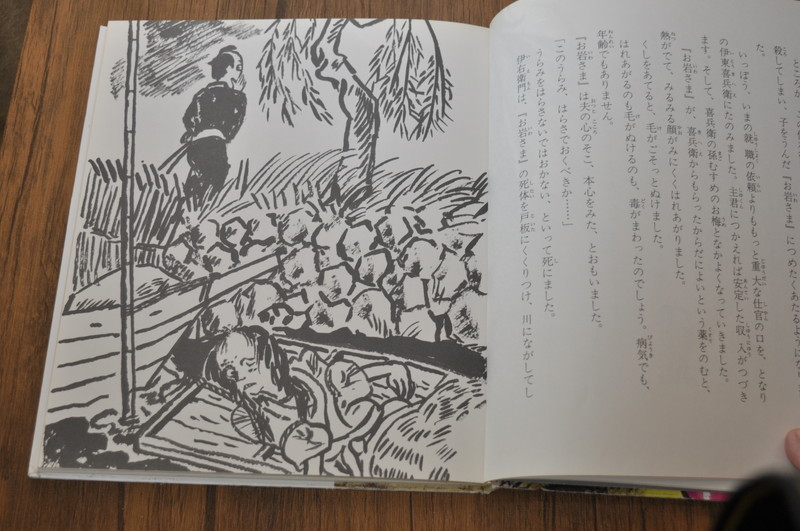 殺してしまい、子をうんだ『お岩さま』につめたくあたるように
た。
いっぽう、いまの就職の依頼よりももっと重大な仕官の口を、となり
の伊東喜兵衛にたのみました。主君につかえれば安定した収入がつづき
ます。そして、喜兵衛の孫むすめのお梅となかよくなっていきました。
『お岩さま』が、喜兵衛からもらったからだによいという薬をのむと、
熱がでて、みるみる顔がみにくくはれあがりました。
くしをあてると、毛がごそっとぬけました。
はれあがるのも毛がぬけるのも、毒がまわったのでしょう。病気でも、
年齢でもありません。
『お岩さま』は夫の心のそこ、本心をみた、とおもいました。
「このうらみ、はらさでおくべきか……」
うらみをはらさないではおかない、といって死にました。
伊右衛門は、『お岩さま』の死体を戸板にくくりつけ、川にながしてし